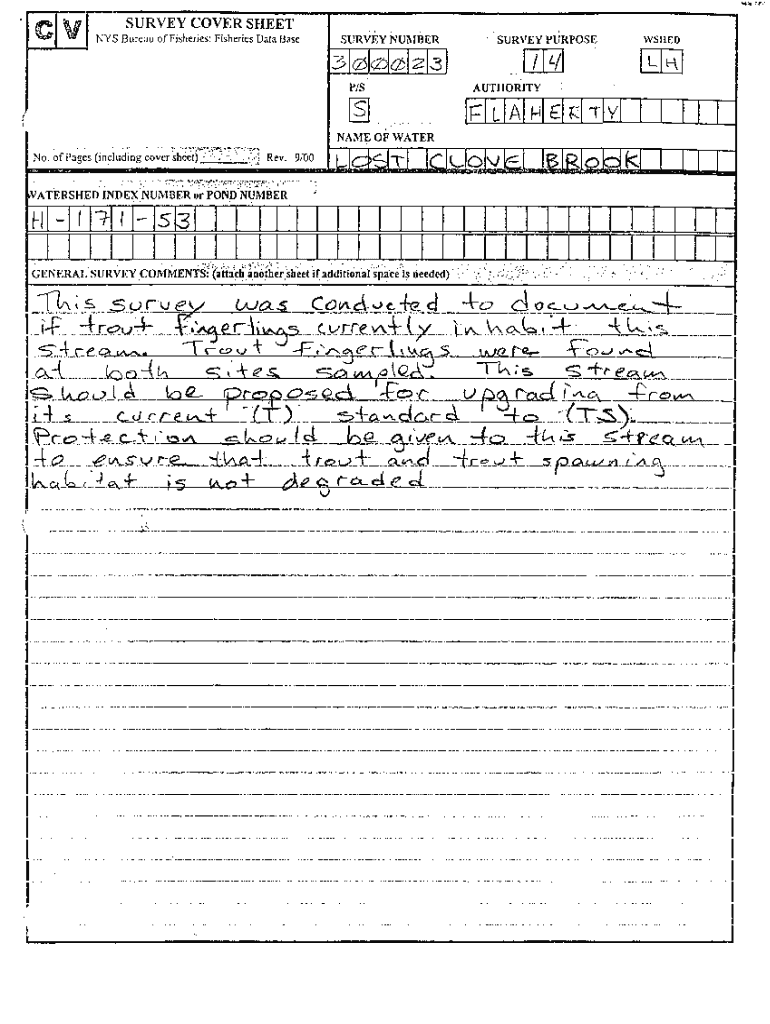 CV
SURVEY COVER SHEET
NYS Bureau of Fisheries: Fisheries Data Base
No. of Pages (including cover sheet) Rev. 9/00
SURVEY NUMBER SURVEY PURPOSE WSHED
300023 14 LH
P/S AUTHORITY
S FLAHERTY
NAME OF WATER
LOST CLOVE BROOK
WATERSHED INDEX NUMBER or POND NUMBER
H-171-53
GENERAL SURVEY COMMENTS: (attach another sheet if additional space is needed)
This survey was conducted to document
if trout fingerlings currently inhabit this
stream. Trout fingerlings were found
at both sites sampled. This stream
should be proposed for upgrading from
its current (T) standard to (TS).
Protection should be given to this stream
to ensure that trout and trout spawning
habitat is not degraded